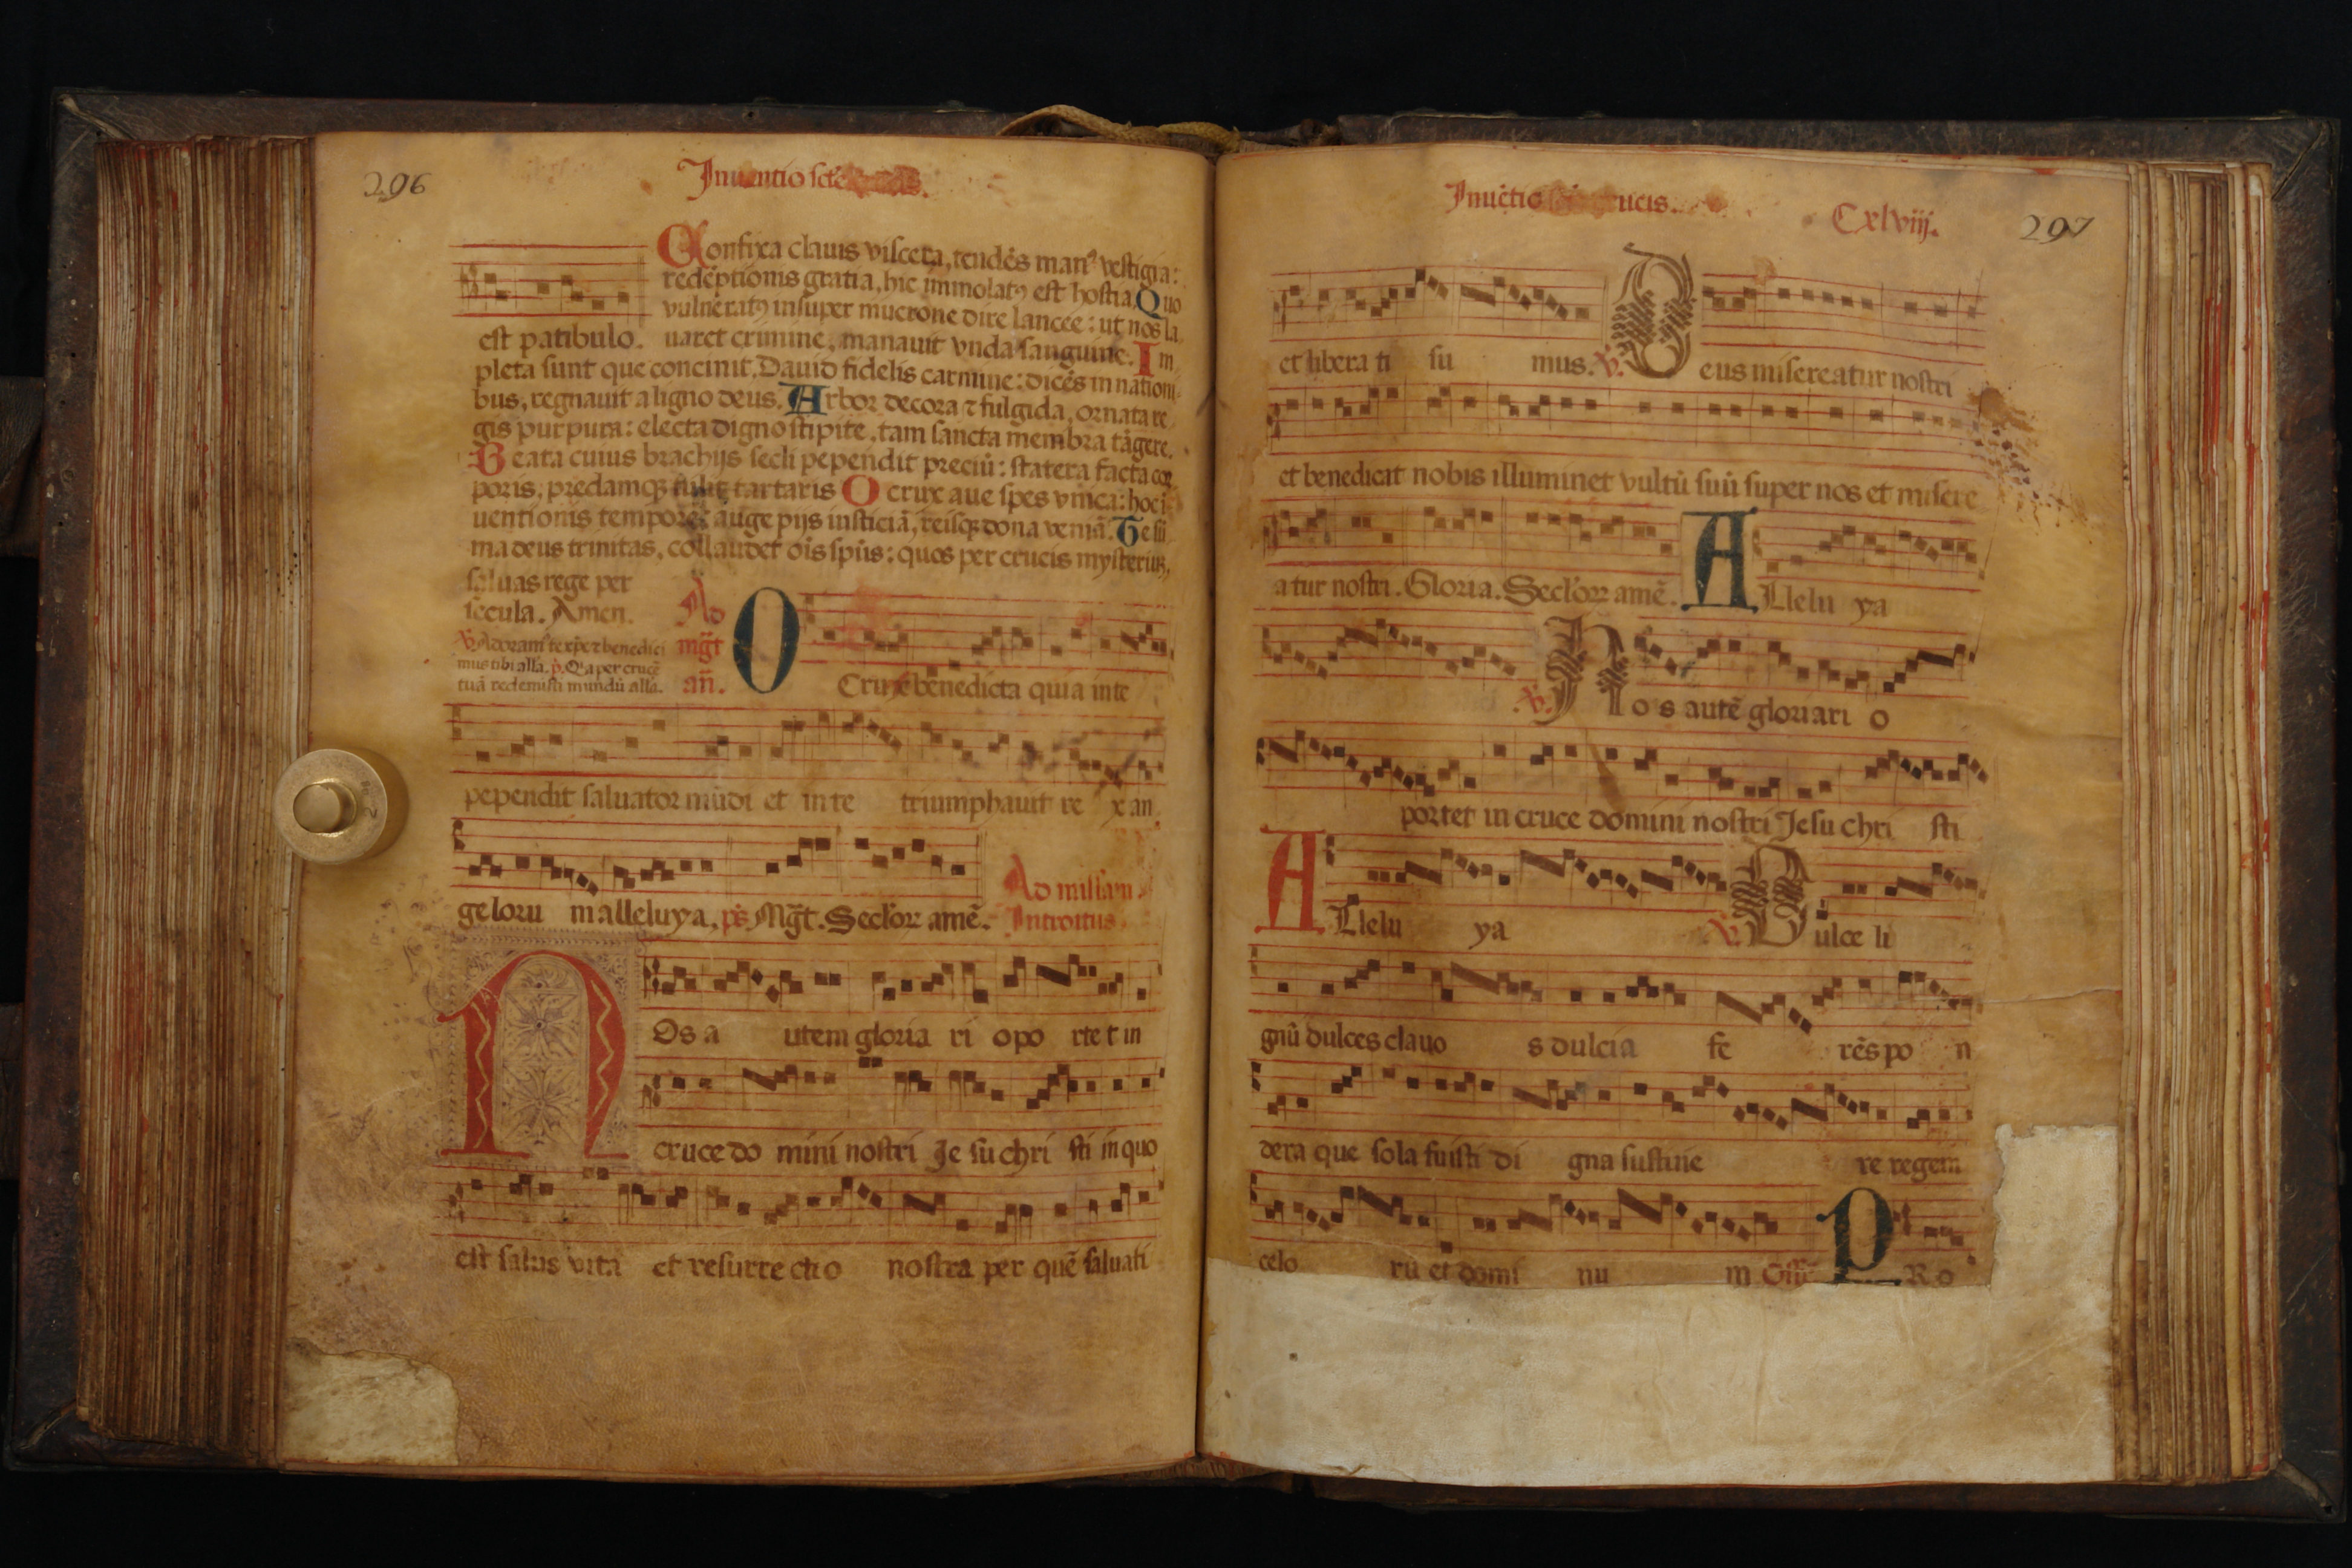 296
Inuentio scte
Confixa clauis viscera, tendẽs manꝰ vestigia:
redẽptionis gratia, hic immolatꝰ est hostia. Quo
vulneratꝰ insuper mucrone dire lancee: ut nos la
est patibulo. uaret crimine, manauit vnda sanguine. Im
pleta sunt que concinit, Dauid fidelis carmine: dicẽs in nationi
bus, regnauit a ligno deus. Arbor decora ⁊ fulgida, ornata re
gis purpura: electa digno stipite, tam sancta membra tãgere.
Beata cuius brachijs secli pependit preciũ: statera facta cor
poris, predamqꝫ tulit tartaris O crux aue spes vnica: hoc ĩ
uentionis tempore: auge pijs iusticiã, reisqꝫ dona veniã. Te sũ
ma deus trinitas, collaudet oĩs spũs: quos per crucis mysteriuꝫ,
saluas rege per
secula. Amen.
℣. Adoramꝰ te xp̃e ⁊ benedici
mus tibi alla. Qa per crucẽ
tuã redemisti mundũ alla.
Ad
mg̃t
añ.
O Crux benedicta quia in te
pependit saluator mũdi et in te triumphauit re x an
geloru m alleluya, ps. Mg̃t. Seclorꝝ amẽ.
Ad missam
Introitus.
NOs a utem gloria ri opo rte t in
cruce do mini nostri Je su chri sti in quo
est salus vita et resurre ctio nostra per quẽ saluati
Inuẽtio ucis.
Cxlviij.
297
et libera ti su mus. ℣. Deus misereatur nostri
et benedicat nobis illuminet vultũ suũ super nos et misere
atur nostri. Gloria. Seclorꝝ amẽ. ALlelu ya
℣. No s autẽ gloriari o
portet in cruce domini nostri Jesu chri sti
ALlelu ya ℣. Dulce li
gnũ dulces clauo s dulcia fe rẽs po n
dera que sola fuisti di gna sustine re regem
celo rũ et domi nu m Off̃. PRo